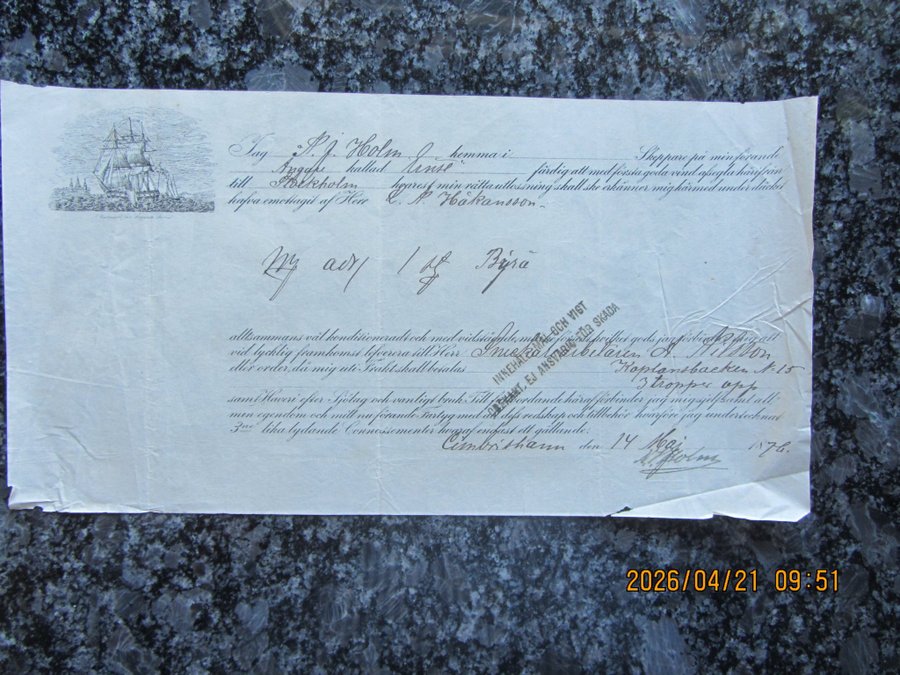 Jag P. J. Holm hemma i Skeppare på min förande
Ångare kallad Ernst färdig att med första goda vind afsegla härifrån
till Stockholm hvarest min rätta utlossning skall ske erkänner mig härmed under däcks
hafva emottagit af Herr L. N. Håkansson.
adr/ 1 st Byrå
INNEHÅLL, MÅL OCH VIGT
OBEKANT, EJ ANSVARIG FÖR SKADA
alltsammans väl konditioneradt och med vidstående
vid lycklig framkomst lefverera till Herr A. Nilsson
eller order, då mig ute Frakt skall betalas Kaplansbacken N: 15
3 troppor upp
samt Haveri efter Sjölag och vanligt bruk Till fullgörande häraf förbinder jag mig sjelf samt all
min egendom och mitt nu förande Fartyg med dess redskap och tillbehör hvarför jag underteknat
3ne lika lydande Connossementer hvaraf endast ett gällande.
Cimbrishamn den 14 Maj 1876.
P. J. Holm
2026/04/21 09:51